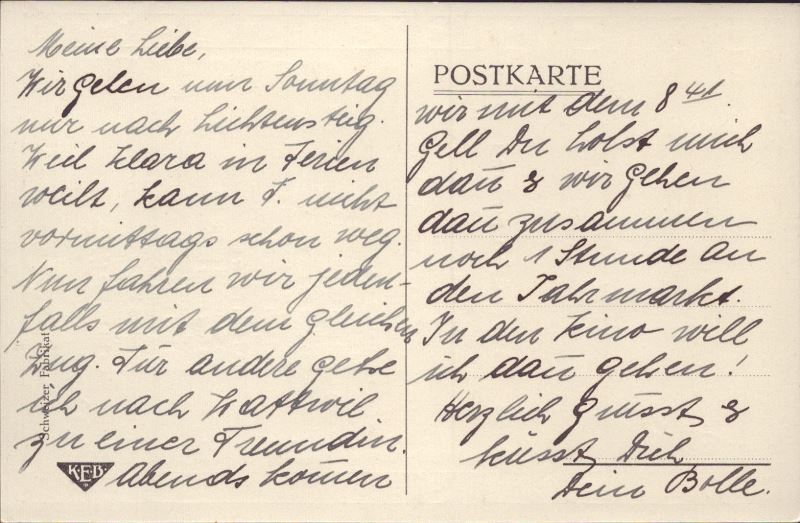 Meine Liebe,
Wir gehen nun Sonntag
nur nach Lichtensteig.
Weil Klara in Ferien
weilt, kann F. nicht
vormittags schon weg.
Nun fahren wir jeden-
falls mit dem gleichen
Zug. Für andere gehe
ich nach Wattwil
zu einer Freundin.
Abends kom̄en
POSTKARTE
wir mit dem 8 41.
Gell Du holst mich
dan̄ & wir gehen
dan̄ zusammen
noch 1 Stunde an
den Jahrmarkt.
In den Kino will
ich dan̄ gehen!
Herzlich grüsst &
küsst Dich
Dein Bolle.
Schweizer Fabrikat
K.E.B.